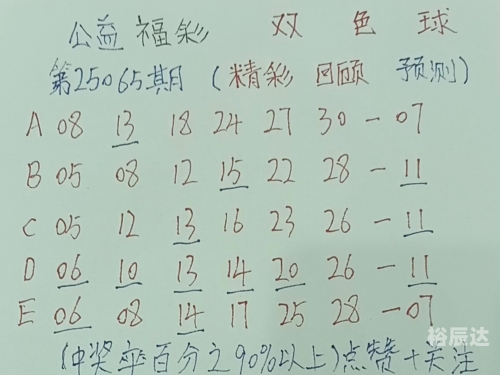 公益福彩 双色球
第25065期 (精彩回顾 预测)
A 08 13 18 24 27 30 - 07
B 05 08 12 15 22 28 - 11
C 05 12 13 16 23 26 - 11
D 06 10 13 14 20 26 - 11
E 06 08 14 17 25 28 - 07
(中奖率百分之90%以上)点赞+关注
裕辰达